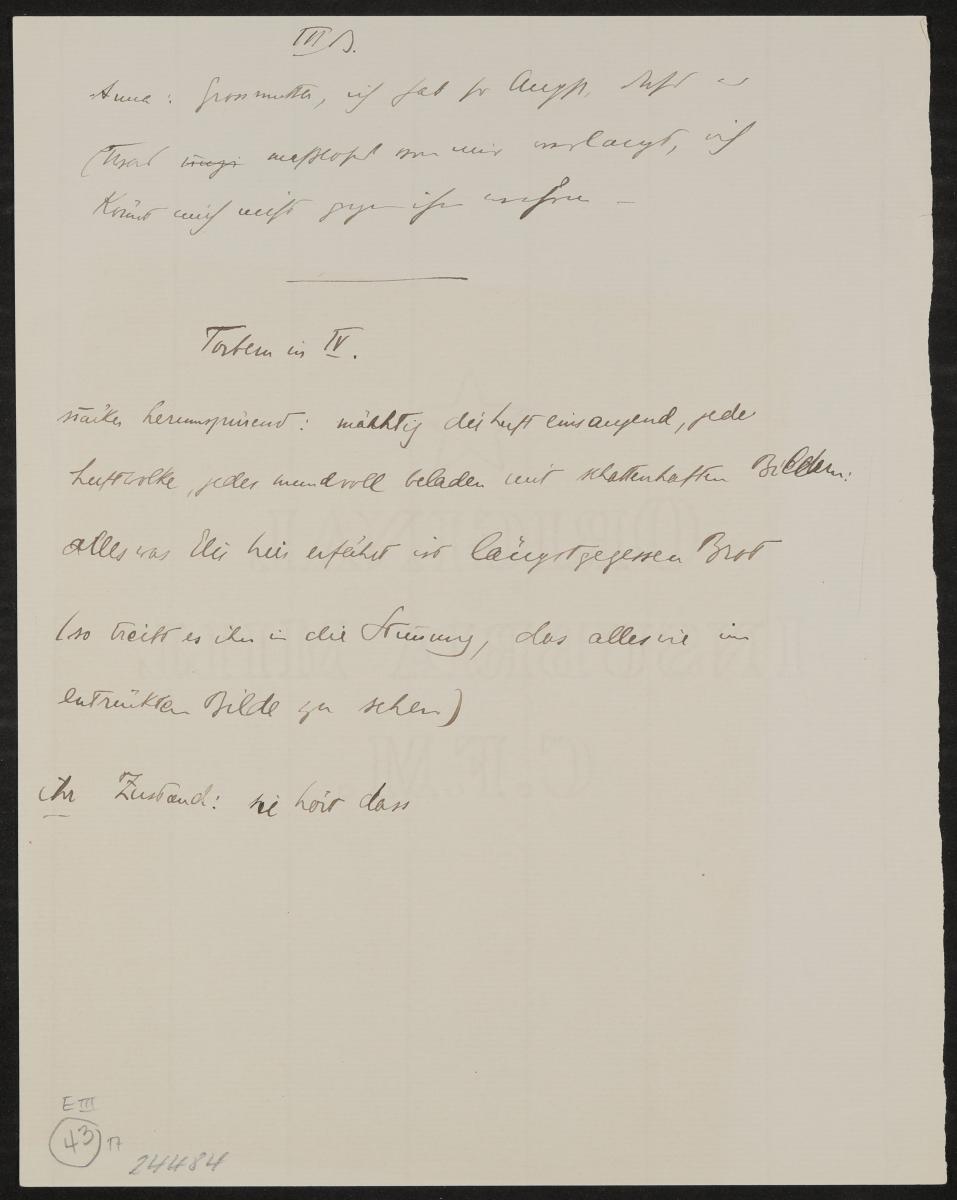 III B.
Anna: Grossmutter, ich hab so Angst, dass er
von mir verlangt, ich
könnt mich nicht gegen ihn wehren –
Torbern in IV.
stärker herumspürend: mächtig die Luft einsaugend, jede
Luftwolke, jedes mundvoll beladen mit schattenhaften Bildern:
alles was Elis hier erfährt ist längstgegessen Brot
(so treibt es ihn in die Stimmung, das alles wie im
entrückten Bilde zu sehen)
ihr Zustand: sie hört dass
E III
43 17
24484